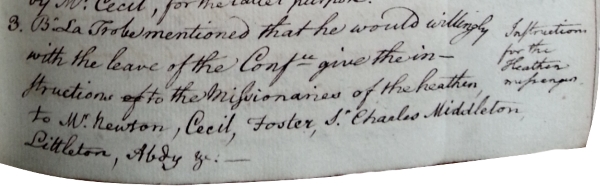 by Mr. Cecil, for the latter purpose.
3. Br. La Trobe mentioned that he would willingly
with the leave of the Confce give the in-
structions of to the Missionaries of the heathen,
to Mr. Newton, Cecil, Foster, Sr. Charles Middleton,
Littleton, Abdy &c. —
Instructions
for the
Heathen
messengers.